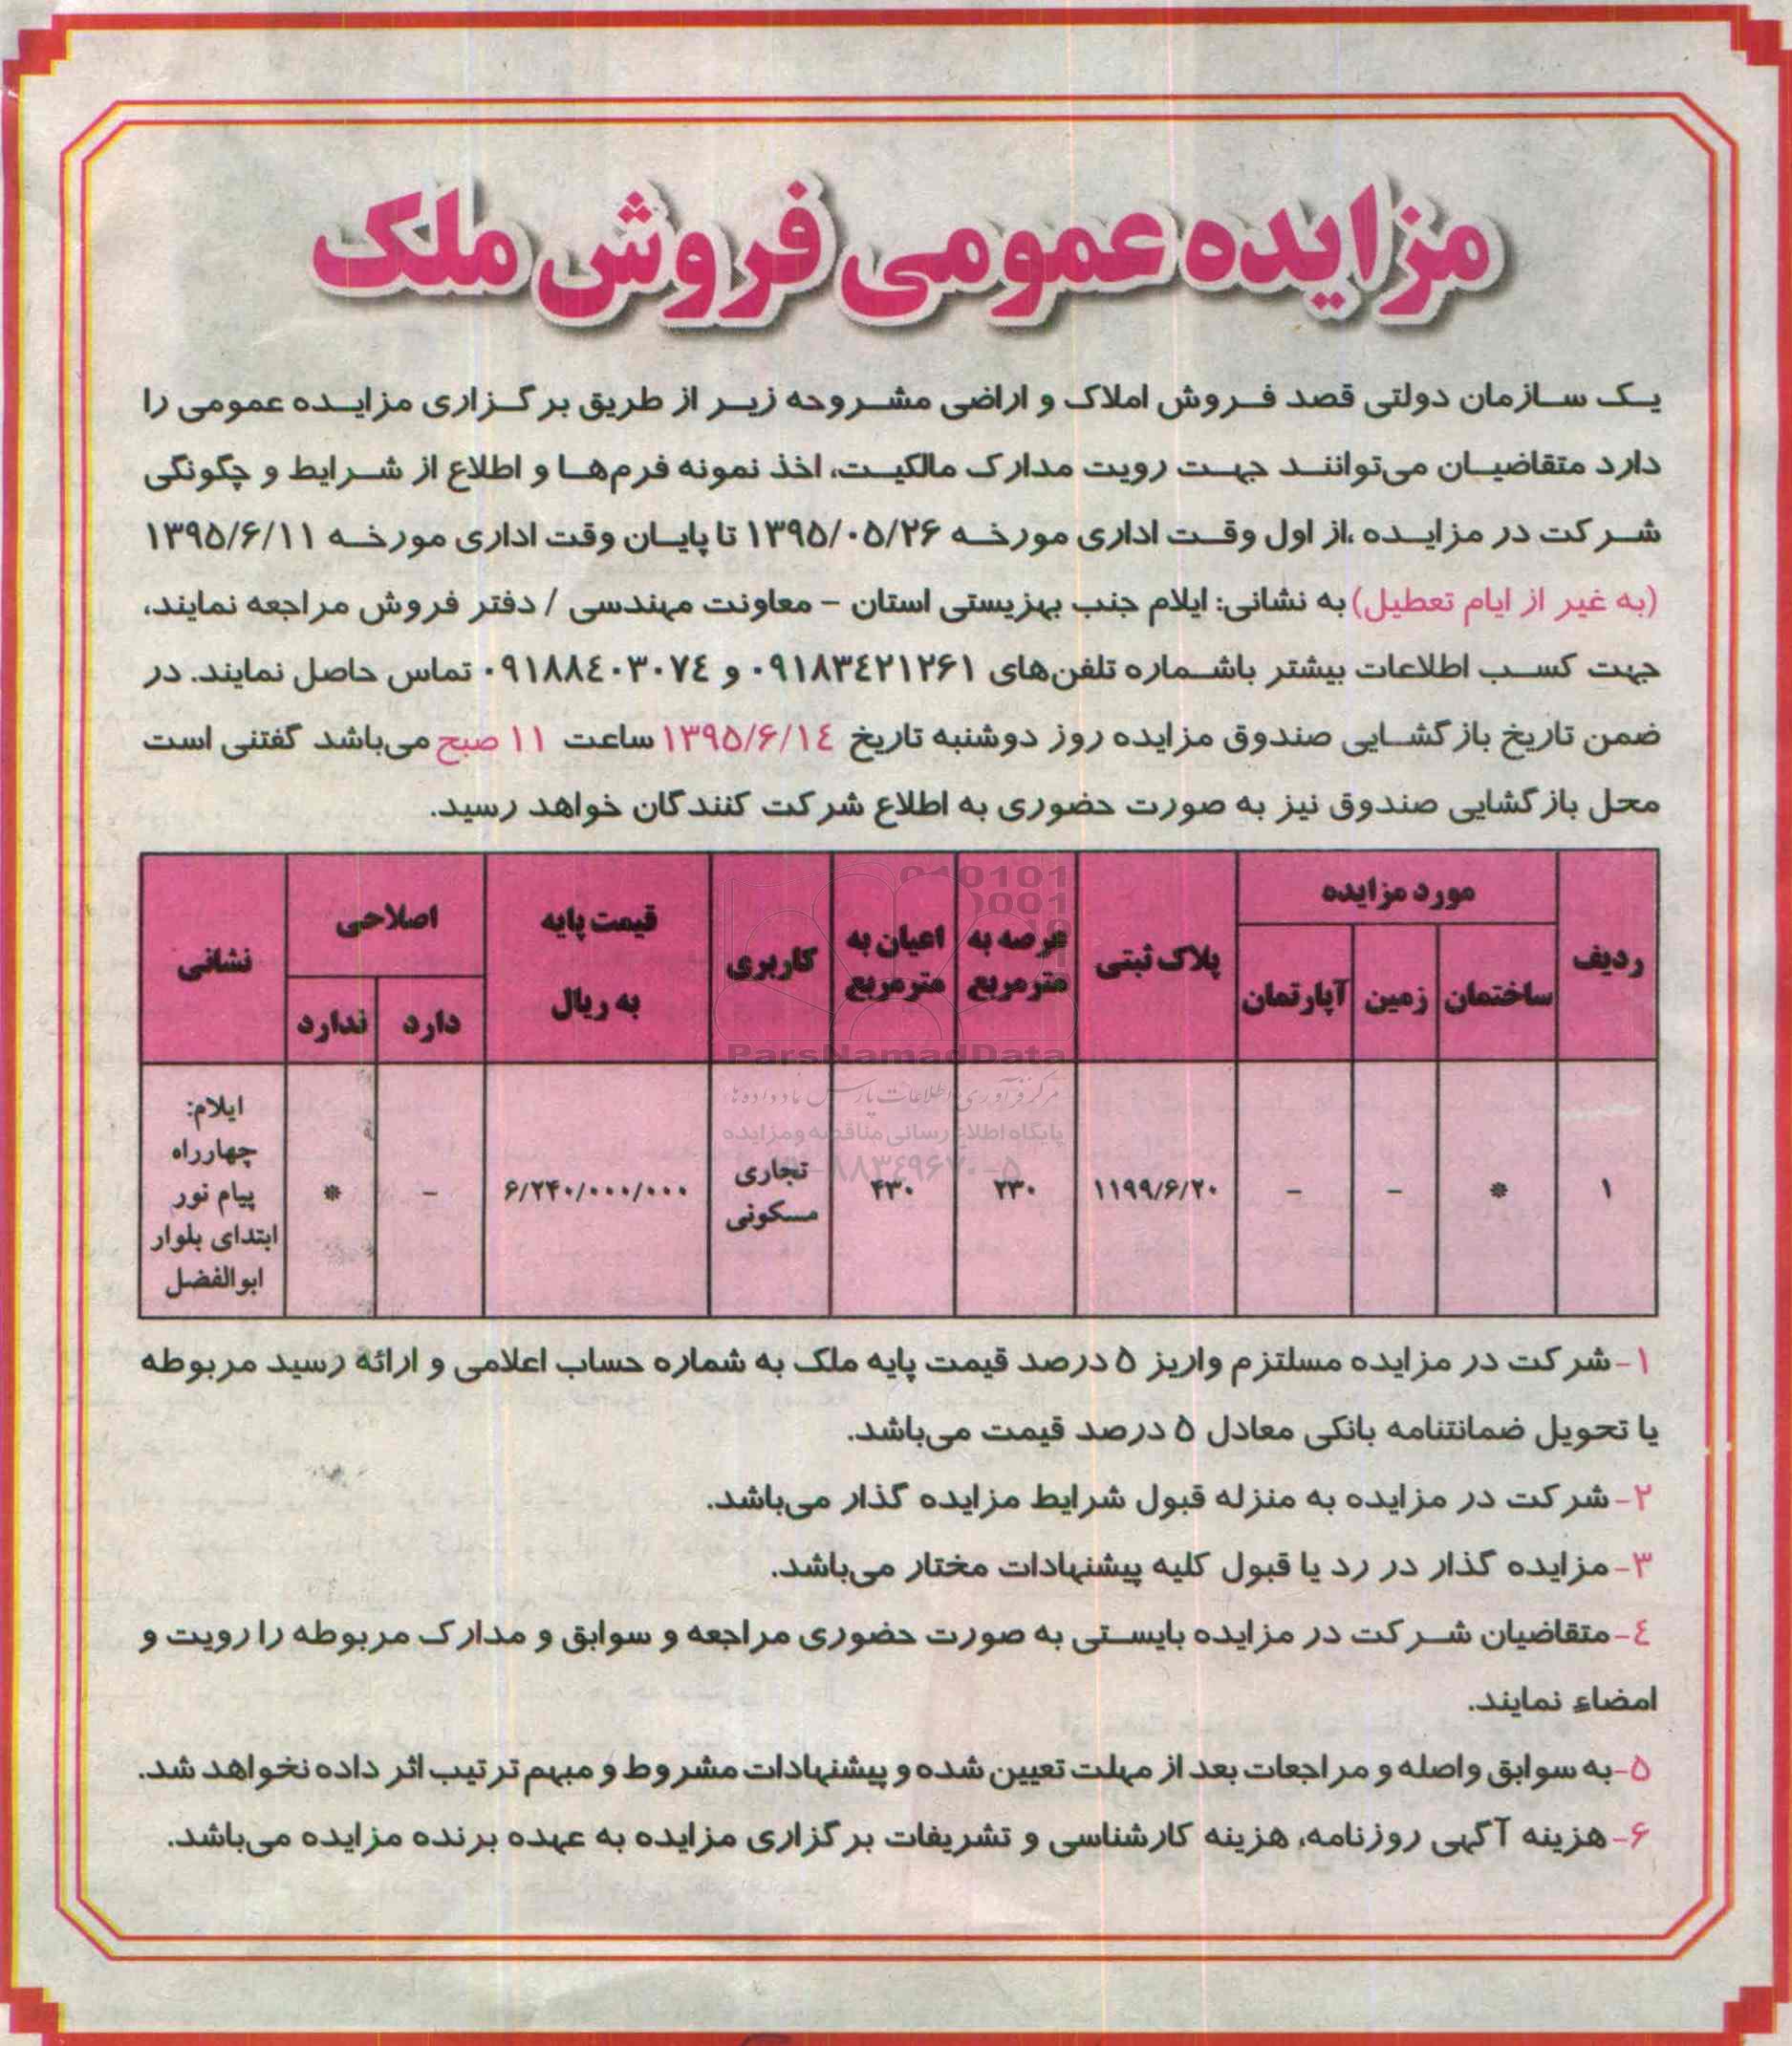 مزایده عمومی فروش ملک
یک سازمان دولتی قصد فروش املاک و اراضی مشروحه زیر از طریق برگزاری مزایده عمومی را
دارد متقاضیان می‌توانند جهت رویت مدارک مالکیت، اخذ نمونه فرم‌ها و اطلاع از شرایط و چگونگی
شرکت در مزایده ،از اول وقت اداری مورخه ۱۳۹۵/۰۵/۲۶ تا پایان وقت اداری مورخه ۱۳۹۵/۶/۱۱
(به غیر از ایام تعطیل) به نشانی: ایلام جنب بهزیستی استان - معاونت مهندسی / دفتر فروش مراجعه نمایند،
جهت کسب اطلاعات بیشتر باشماره تلفن‌های ۰۹۱۸۳٤۲۱۲۶۱ و ۰۹۱۸۸٤۰۳۰۷٤ تماس حاصل نمایند. در
ضمن تاریخ بازگشایی صندوق مزایده روز دوشنبه تاریخ ۱۳۹۵/۶/۱٤ ساعت ۱۱ صبح می‌باشد گفتنی است
محل بازگشایی صندوق نیز به صورت حضوری به اطلاع شرکت کنندگان خواهد رسید.
ردیف
مورد مزایده
ساختمان
زمین
آپارتمان
پلاک ثبتی
عرصه به
مترمربع
اعیان به
مترمربع
کاربری
قیمت پایه
به ریال
اصلاحی
دارد
ندارد
نشانی
۱
*
-
-
۱۱۹۹/۶/۲۰
۲۳۰
۴۳۰
تجاری
مسکونی
۶/۲۴۰/۰۰۰/۰۰۰
-
*
ایلام:
چهارراه
پیام نور
ابتدای بلوار
ابوالفضل
ParsNamadData
پایگاه اطلاع رسانی مناقصه ومزایده
۱- شرکت در مزایده مسلتزم واریز ۵ درصد قیمت پایه ملک به شماره حساب اعلامی و ارائه رسید مربوطه
یا تحویل ضمانتنامه بانکی معادل ۵ درصد قیمت می‌باشد.
۲- شرکت در مزایده به منزله قبول شرایط مزایده گذار می‌باشد.
۳- مزایده گذار در رد یا قبول کلیه پیشنهادات مختار می‌باشد.
٤- متقاضیان شرکت در مزایده بایستی به صورت حضوری مراجعه و سوابق و مدارک مربوطه را رویت و
امضاء نمایند.
۵- به سوابق واصله و مراجعات بعد از مهلت تعیین شده و پیشنهادات مشروط و مبهم ترتیب اثر داده نخواهد شد.
۶- هزینه آگهی روزنامه، هزینه کارشناسی و تشریفات برگزاری مزایده به عهده برنده مزایده می‌باشد.